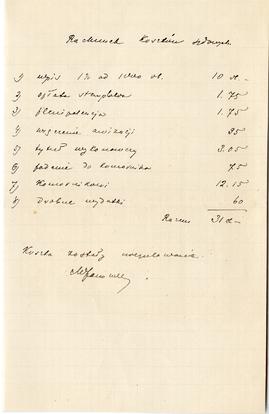 Rachunek kosztów sądowych
1) wpis 1% od 1000 zł. 10 zł.–
2) opłata stemplowa 1.75
3) plenipotencja 1.75
4) wręczenie awizacji 95
5) tytuł wykonawczy 3.05
6) podanie do komornika 75
7) Komornikowi 12.15
8) Drobne wydatki 60
Razem 31 zł–
Koszta zostały uregulowane.